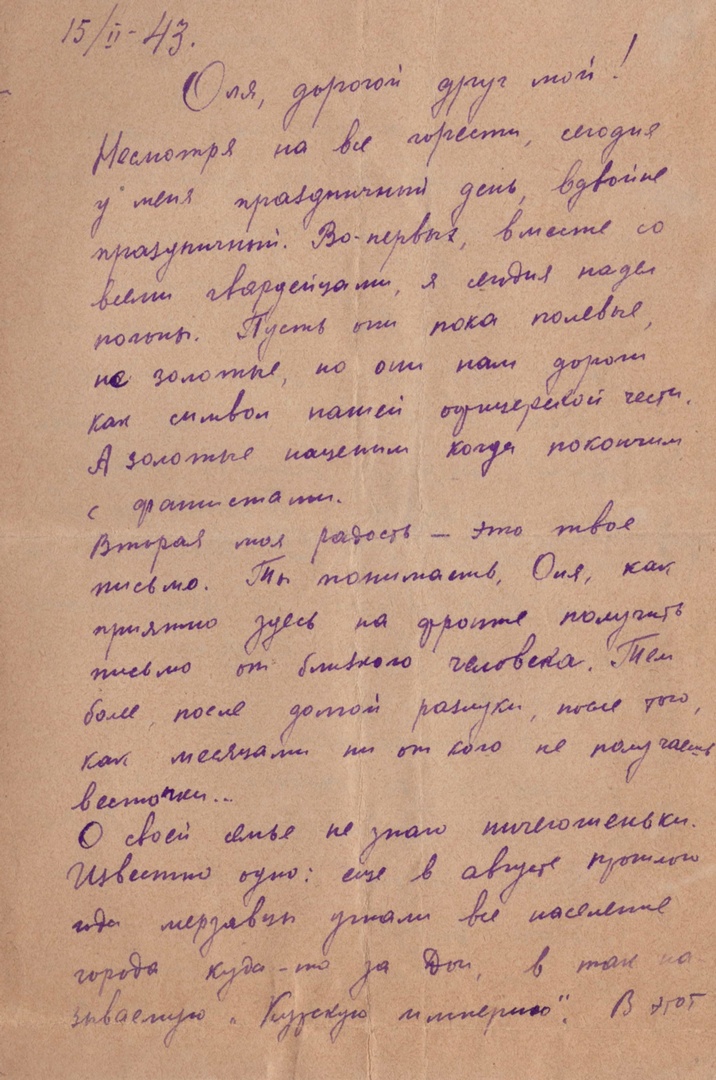 15/II-43.
Оля, дорогой друг мой!
Несмотря на все горести, сегодня
у меня праздничный день, вдвойне
праздничный. Во-первых, вместе со
всеми гвардейцами, я сегодня надел
погоны. Пусть они пока полевые,
не золотые, но они нам дороги
как символ нашей офицерской чести.
А золотые нацепим когда покончим
с фашистами.
Вторая моя радость – это твое
письмо. Ты понимаешь, Оля, как
приятно здесь на фронте получить
письмо от близкого человека. Тем
более, после долгой разлуки, после того,
как месяцами ни от кого не получаешь
весточки...
О своей семье не знаю ничегошеньки.
Известно одно: еще в августе прошлого
года мерзавцы угнали все население
города куда-то за Дон, в так на-
зываемую "империю". В этот